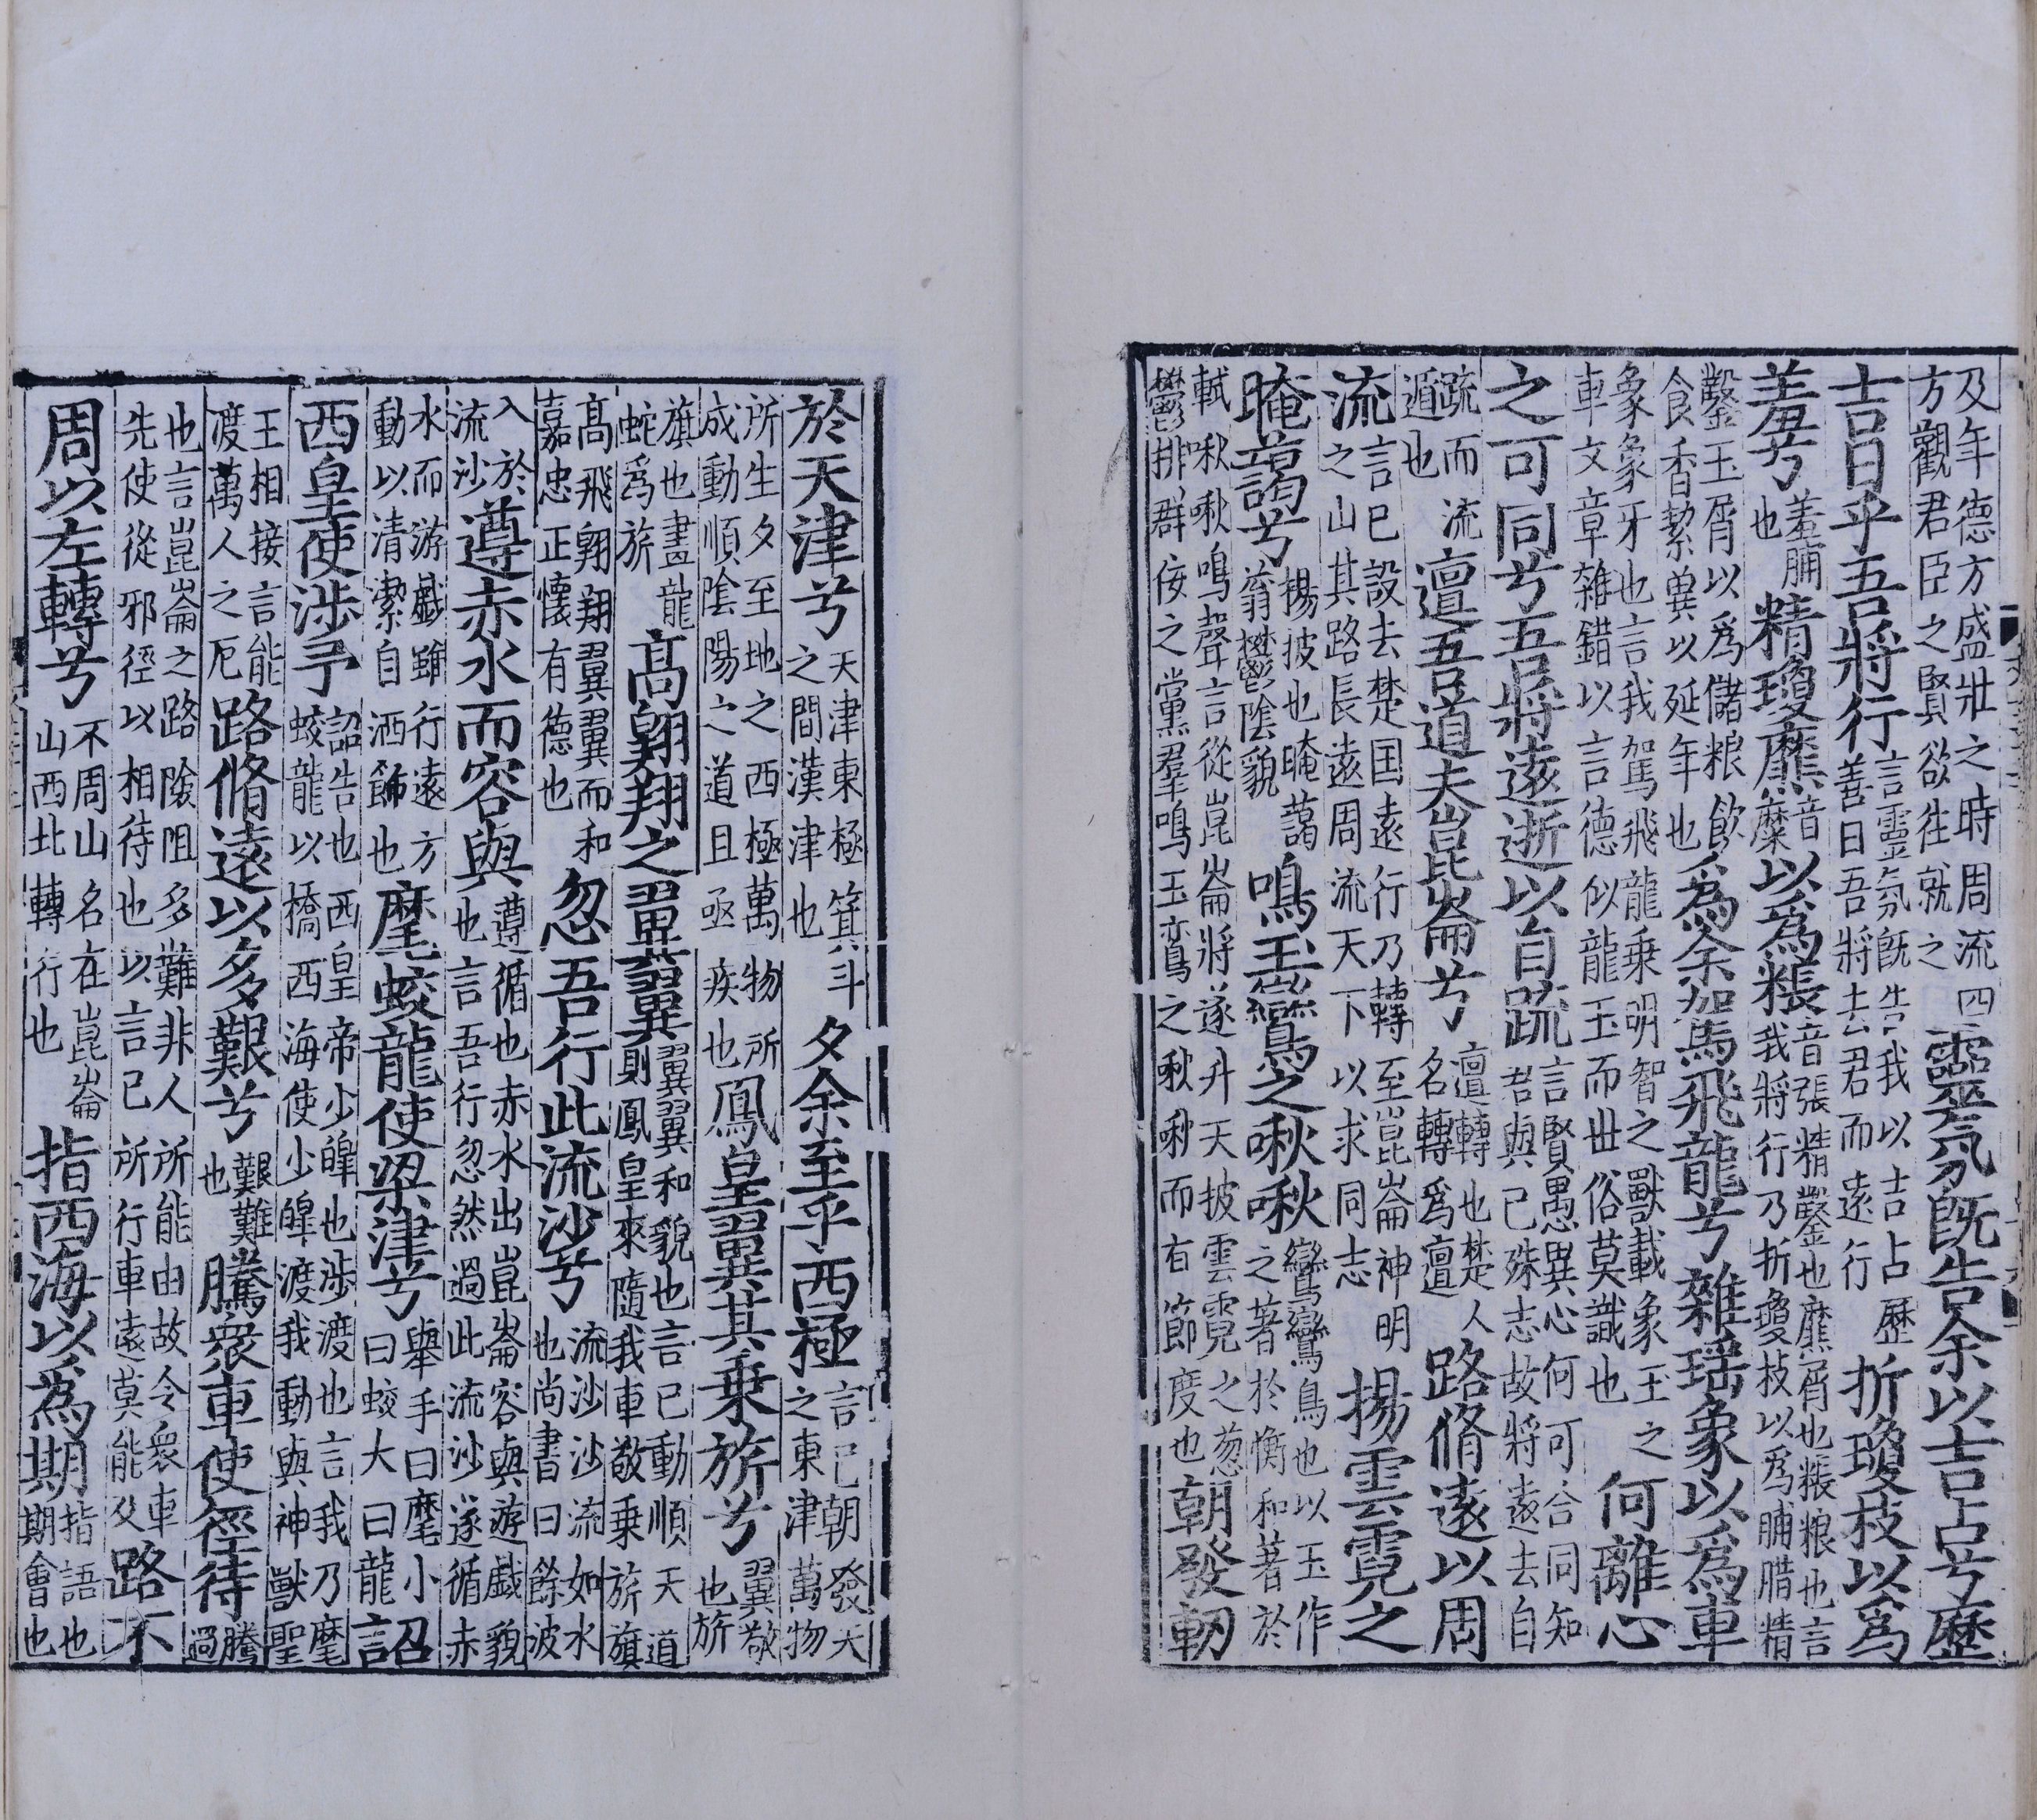 及年德方盛壯之時周流四方觀君臣之賢欲往就之靈氛旣告余以吉占兮歷
吉日乎吾將行言靈氛旣告我以吉占歷善日吾將去君而遠行折瓊枝以爲
羞兮羞脯也精瓊爢音糜以爲粻音張精鑿也爢屑也粻粮也言我將行乃折瓊枝以爲脯腊精
鑿玉屑以爲儲粮飲食香絜兾以延年也爲余駕飛龍兮雜瑶象以爲車
象象牙也言我駕飛龍乗明智之獸載象玉之車文章雜錯以言德似龍玉而世俗莫識也何離心
之可同兮吾將遠逝以自疏言賢愚異心何可合同知君與己殊志故將遠去自
疏而流遁也邅吾道夫崑崙兮邅轉也楚人名轉爲邅路脩遠以周
流言已設去楚国遠行乃轉至崑崙神明之山其路長遠周流天下以求同志揚雲霓之
晻藹兮揚披也晻藹蓊鬱陰貌鳴玉鸞之啾啾鸞鸞鳥也以玉作之著於衡和著於
軾啾啾鳴聲言從崑崙將遂升天披雲霓之蓊鬱排群佞之黨羣鳴玉鸞之啾啾而有節度也朝發軔
於天津兮天津東極箕斗之間漢津也夕余至乎西極言已朝發天之東津萬物
所生夕至地之西極萬物所成動順陰陽之道且亟疾也鳳皇翼其乗旂兮翼敬也旂
旗也畫龍蛇爲旂高翺翔之翼翼翼翼和貌也言已動順天道則鳳皇來隨我車敬乗旂旗
髙飛翺翔翼翼而和嘉忠正懷有德也忽吾行此流沙兮流沙沙流如水也尚書曰餘波
入於流沙遵赤水而容與遵循也赤水出崑崙容與游戲貌也言吾行忽然過此流沙遂循赤
水而游戲雖行遠方動以清潔自洒飾也麾蛟龍使梁津兮舉手曰麾小曰蛟大曰龍詔
西皇使涉予詔告也西皇帝少皞也涉渡也言我乃麾蛟龍以橋西海使少皞渡我動與神獸聖
王相接言能渡萬人之厄路脩遠以多艱兮艱難也騰衆車使徑待騰過
也言崑崙之路險阻多難非人所能由故令衆車先使從邪徑以相待也以言已所行車遠莫能及路不
周以左轉兮不周山名在崑崙山西北轉行也指西海以爲期指語也期會也